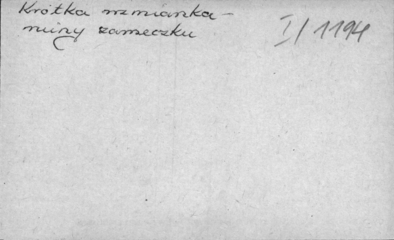 Krótka wzmianka –
ruiny zameczku
I/1194